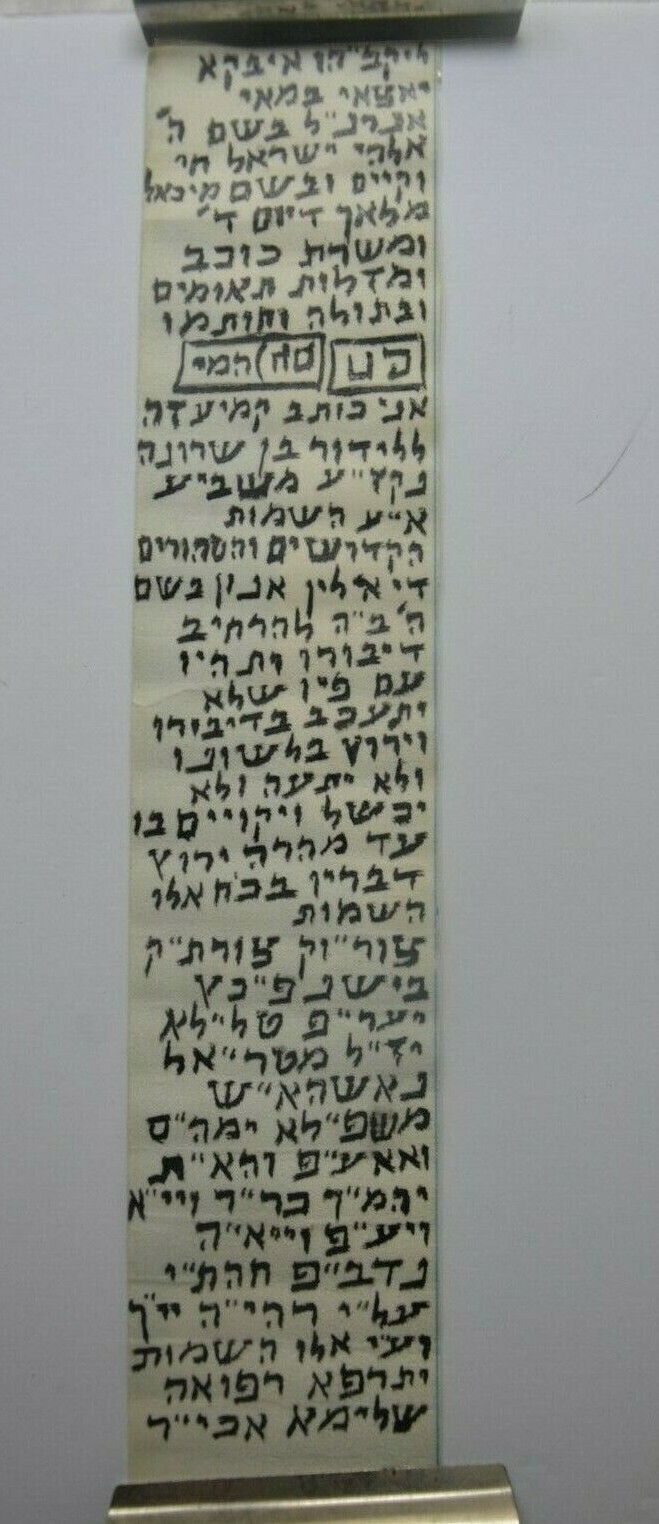 ליקב"הו איבקא
יאצאי במאי
אגרנ"ל בשם ה'
אלהי ישראל חי
וקיים ובשם מיכאל
מלאך דיום ד'
ומשרת כוכב
ומזלות תאומים
ובתולה וחותמו
אני כותב קמיע זה
ללידור בן שרונה
נקז"ע משביע
א"ע השמות
הקדושים והטהורים
די אילין אנון בשם
ה' ב"ה להרחיב
דיבורו ות היו
עם פיו שלא
יתעכב בדיבורו
וירוץ בלשונו
ולא יתעה ולא
יכשל ויקויים בו
עד מהרה ירוץ
דברין בכח אלו
השמות
צור"וק צורת"ק
בישנ פ"כץ
יער"פ טל"לא
יז"ל מטר"אל
נאשהא"ש
משפ"לא ימה"ס
ואאע"פ והא"ת
יהמ"ך כר"ד ויי"א
ויע"פ ויי"א"ה
נדב"פ חהת"י
על"י רהי"ה יי"ך
וע"י אלו השמות
יתרפא רפואה
שלימא אכי"ר